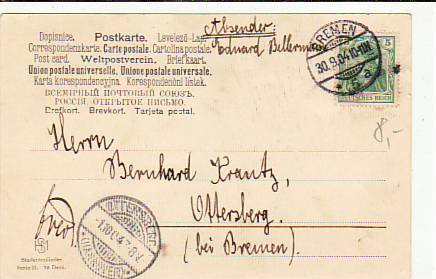 Absender
Eduard Bellerm
Dopisnice. Postkarte. Levelező-La
Correspondenzkarte. Carte postale. Cartolina postale.
Post card. Weltpostverein. Briefkaart.
Union postale universelle. Unione postale universale.
Karta korespondencyjna. Korespondenčni listek.
ВСЕМІРНЫЙ ПОЧТОВЫЙ СОЮЗЪ.
РОССІЯ. ОТКРЫТОЕ ПИСЬМО.
Brefkort. Brevkort. Tarjeta postal.
BREMEN
30.9.04
5
DEUTSCHES REICH
8,-
Herrn
Bernhard Krantz,
Ottersberg.
(bei Bremen).
OTTERSBERG
1.10.04
(HANNOVER)